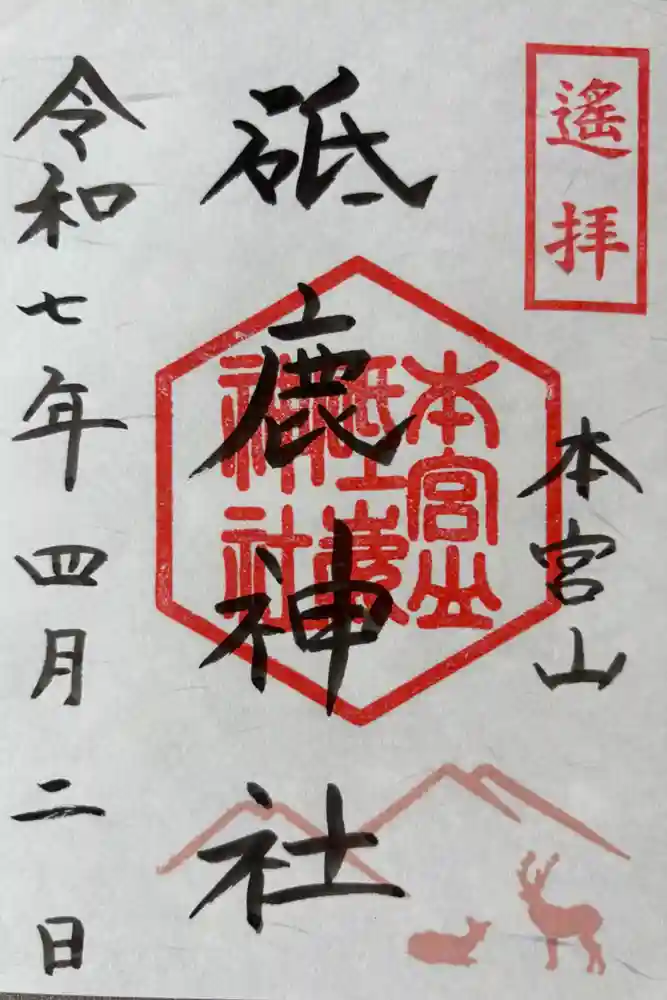 遙拝
本宮山
砥鹿神社
本宮山
神社
令和七年四月二日